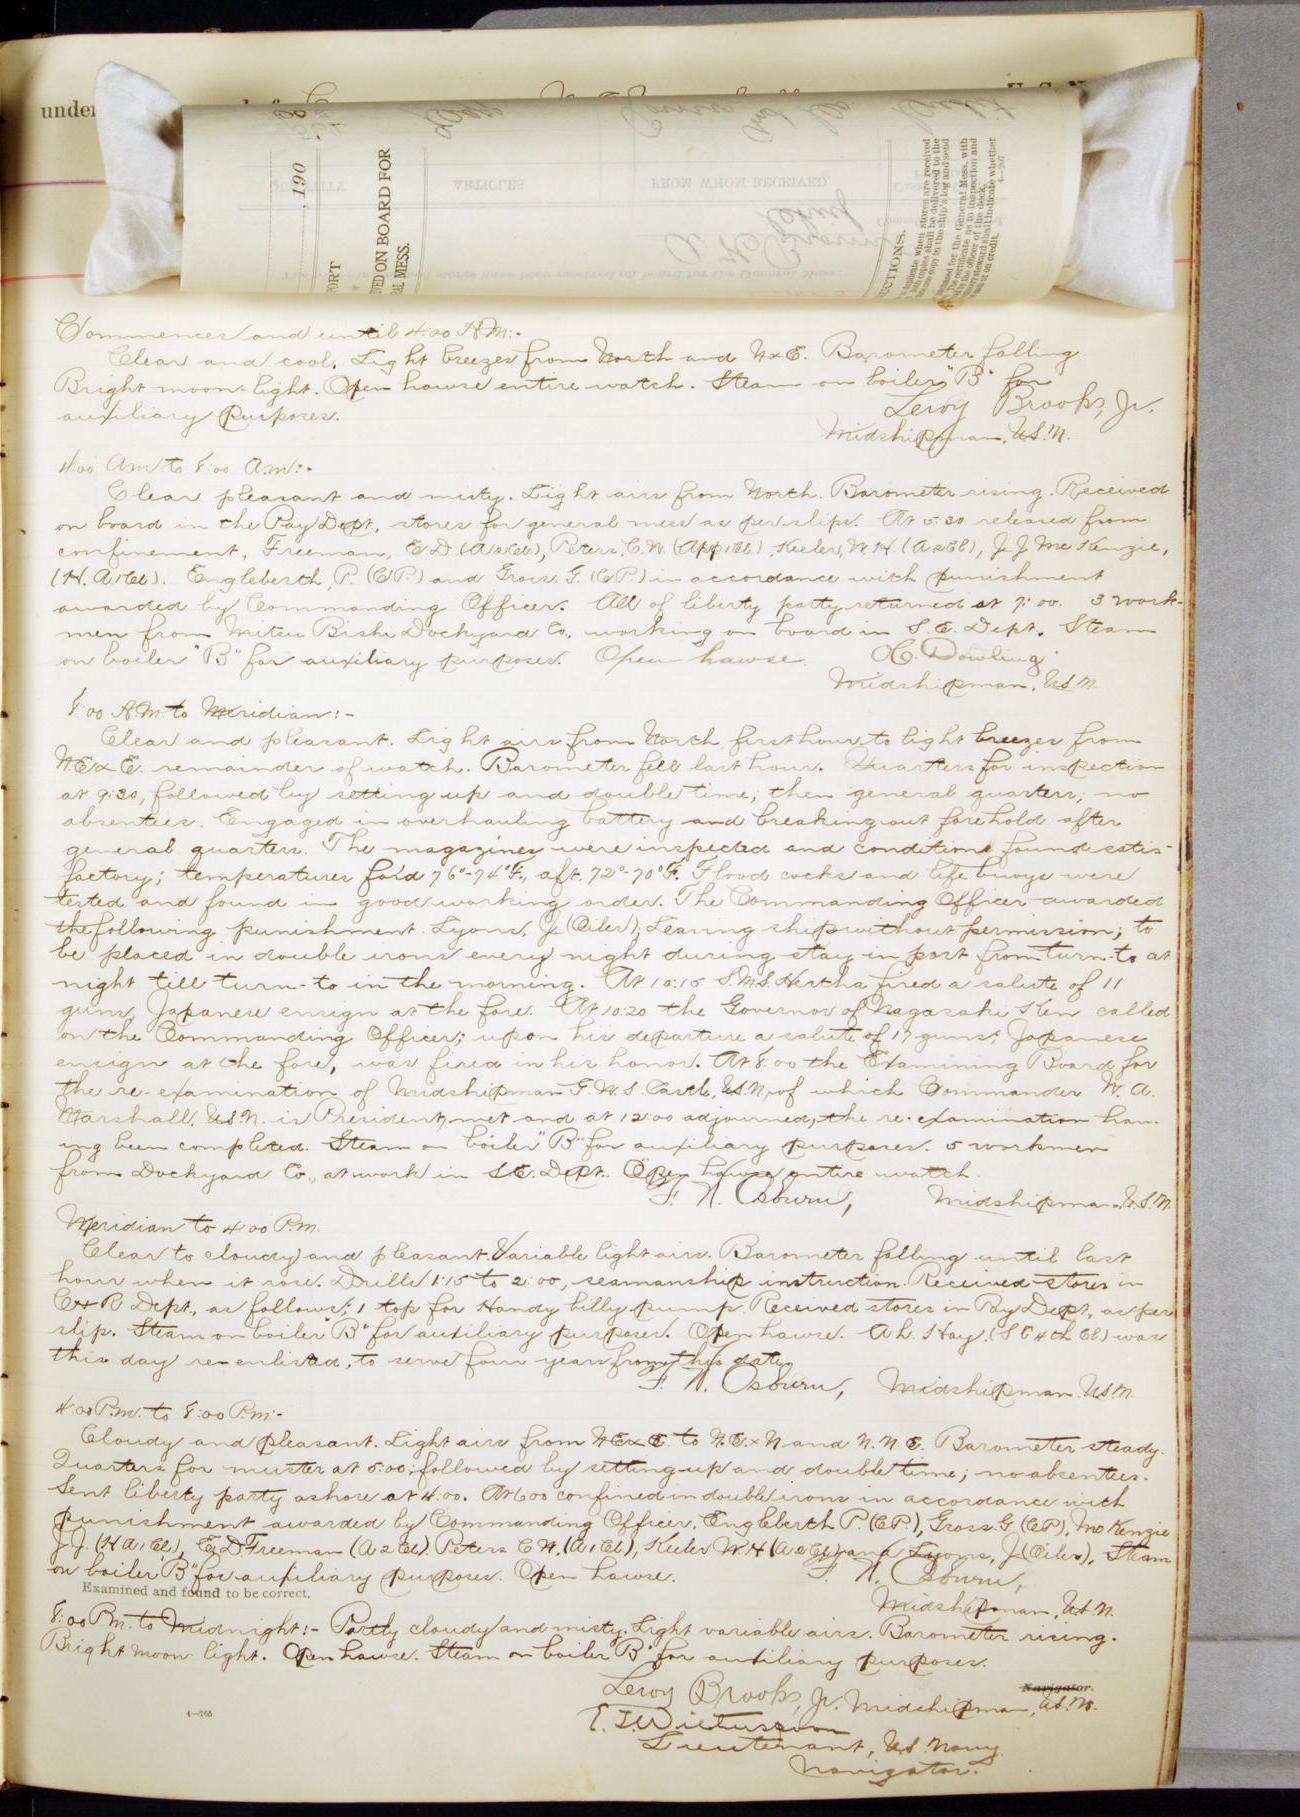 under
, 190
ORT
VED ON BOARD FOR
AL MESS.
QUANTITY
ARTICLES
FROM WHOM RECEIVED
UCTIONS.
4—207
Commences and until 4:00 A.M:-
Clear and cool. Light breezes from North and NxE. Barometer falling
Bright moon-light. Open hawse entire watch. Steam on boiler "B" for
auxiliary purposes.
Leroy Brooks, Jr.
Midshipman, U.S.N.
4:00 A.m to 8:00 A.m:-
Clear pleasant and misty. Light airs from North. Barometer rising. Received
on board in the Pay Dept. stores for general mess as per slips. At 5:30 released from
confinement, Freeman, E.D. (A2Cl), Peters, C.W. (App1Cl), Keeler, W.H. (A2Cl), J J McKenzie,
(H.A1Cl). Engleberth, P. (C.P.) and Gross, G. (C.P.) in accordance with punishment
awarded by Commanding Officer. All of liberty party returned at 7:00. 3 work-
men from Mitsu Bishi Dockyard Co. working on board in S.E. Dept. Steam
on boiler "B" for auxiliary purposes. Open hawse.
O.C. Dowling
Midshipman, U.S.N.
8:00 A.M. to Meridian:-
Clear and pleasant. Light airs from North first hour to light breezes from
NExE. remainder of watch. Barometer fell last hour. Quarters for inspection
at 9:30, followed by setting up and double time; then general quarters; no
absentees. Engaged in overhauling battery and breaking out fore hold after
general quarters. The magazines were inspected and conditions found satis-
factory; temperatures for'd 76°-74°F., aft. 72°-70°F. Flood cocks and life buoys were
tested and found in good working order. The Commanding Officer awarded
the following punishment. Lyons, J. (Oiler); Leaving ship without permission; to
be placed in double irons every night during stay in port from turn-to at
night till turn-to in the morning. At 10:15 S.M.S. Hertha fired a salute of 11
guns, Japanese ensign at the fore. At 10:20 the Governor of Nagasaki Ken called
on the Commanding Officer; upon his departure a salute of 17 guns; Japanese
ensign at the fore, was fired in his honor. At 8:00 the Examining Board for
the re-examination of Midshipman G.W.S. Castle, U.S.N., of which Commander W. A.
Marshall, U.S.N. is President, met and at 12:00 adjourned, the re-examination hav-
ing been completed. Steam on boiler "B" for auxiliary purposes. 5 workmen
from Dockyard Co., at work in S.E. Dept. Open hawse entire watch.
F. N. Osburn, Midshipman, U.S.N.
Meridian to 4:00 P.m.
Clear to cloudy and pleasant. Variable light airs. Barometer falling until last
hour when it rose. Drills 1:15 to 2:00, seamanship instruction. Received stores in
C & R Dept., as follows: 1 top for Handy billy pump. Received stores in Pay Dept, as per
slip. Steam on boiler "B" for auxiliary purposes. Open hawse. A L. Hay, (S C 4th Cl) was
this day re-enlisted, to serve four years from this date.
F. N. Osburn, Midshipman U.S.N.
4:00 P.m. to 8:00 P.m:-
Cloudy and pleasant. Light airs from NExE. to N.E.xN. and N.N.E. Barometer steady.
Quarters for muster at 5:00; followed by setting up and double time; no absentees.
Sent liberty party ashore at 4:00. At 6:00 confined in double irons in accordance with
punishment awarded by Commanding Officer, Engleberth P. (C.P.), Gross. G (C.P.), McKenzie
J J. (H A 1 Cl), E.D. Freeman (A 2 Cl). Peters C W. (A 1 Cl), Keeler W H (A 2 Cl) and Lyons, J. (Oiler). Steam
on boiler "B" for auxiliary purposes. Open hawse.
F. N. Osburn,
Midshipman, U.S.N.
Examined and found to be correct.
8:00 P.m. to Midnight:- Partly cloudy and misty. Light variable airs. Barometer rising.
Bright moon light. Open hawse. Steam on boiler B for auxiliary purposes.
Leroy Brooks, Jr. Midshipman, U.S.N.
Navigator.
Lieutenant, U.S. Navy
Navigator.
4—265